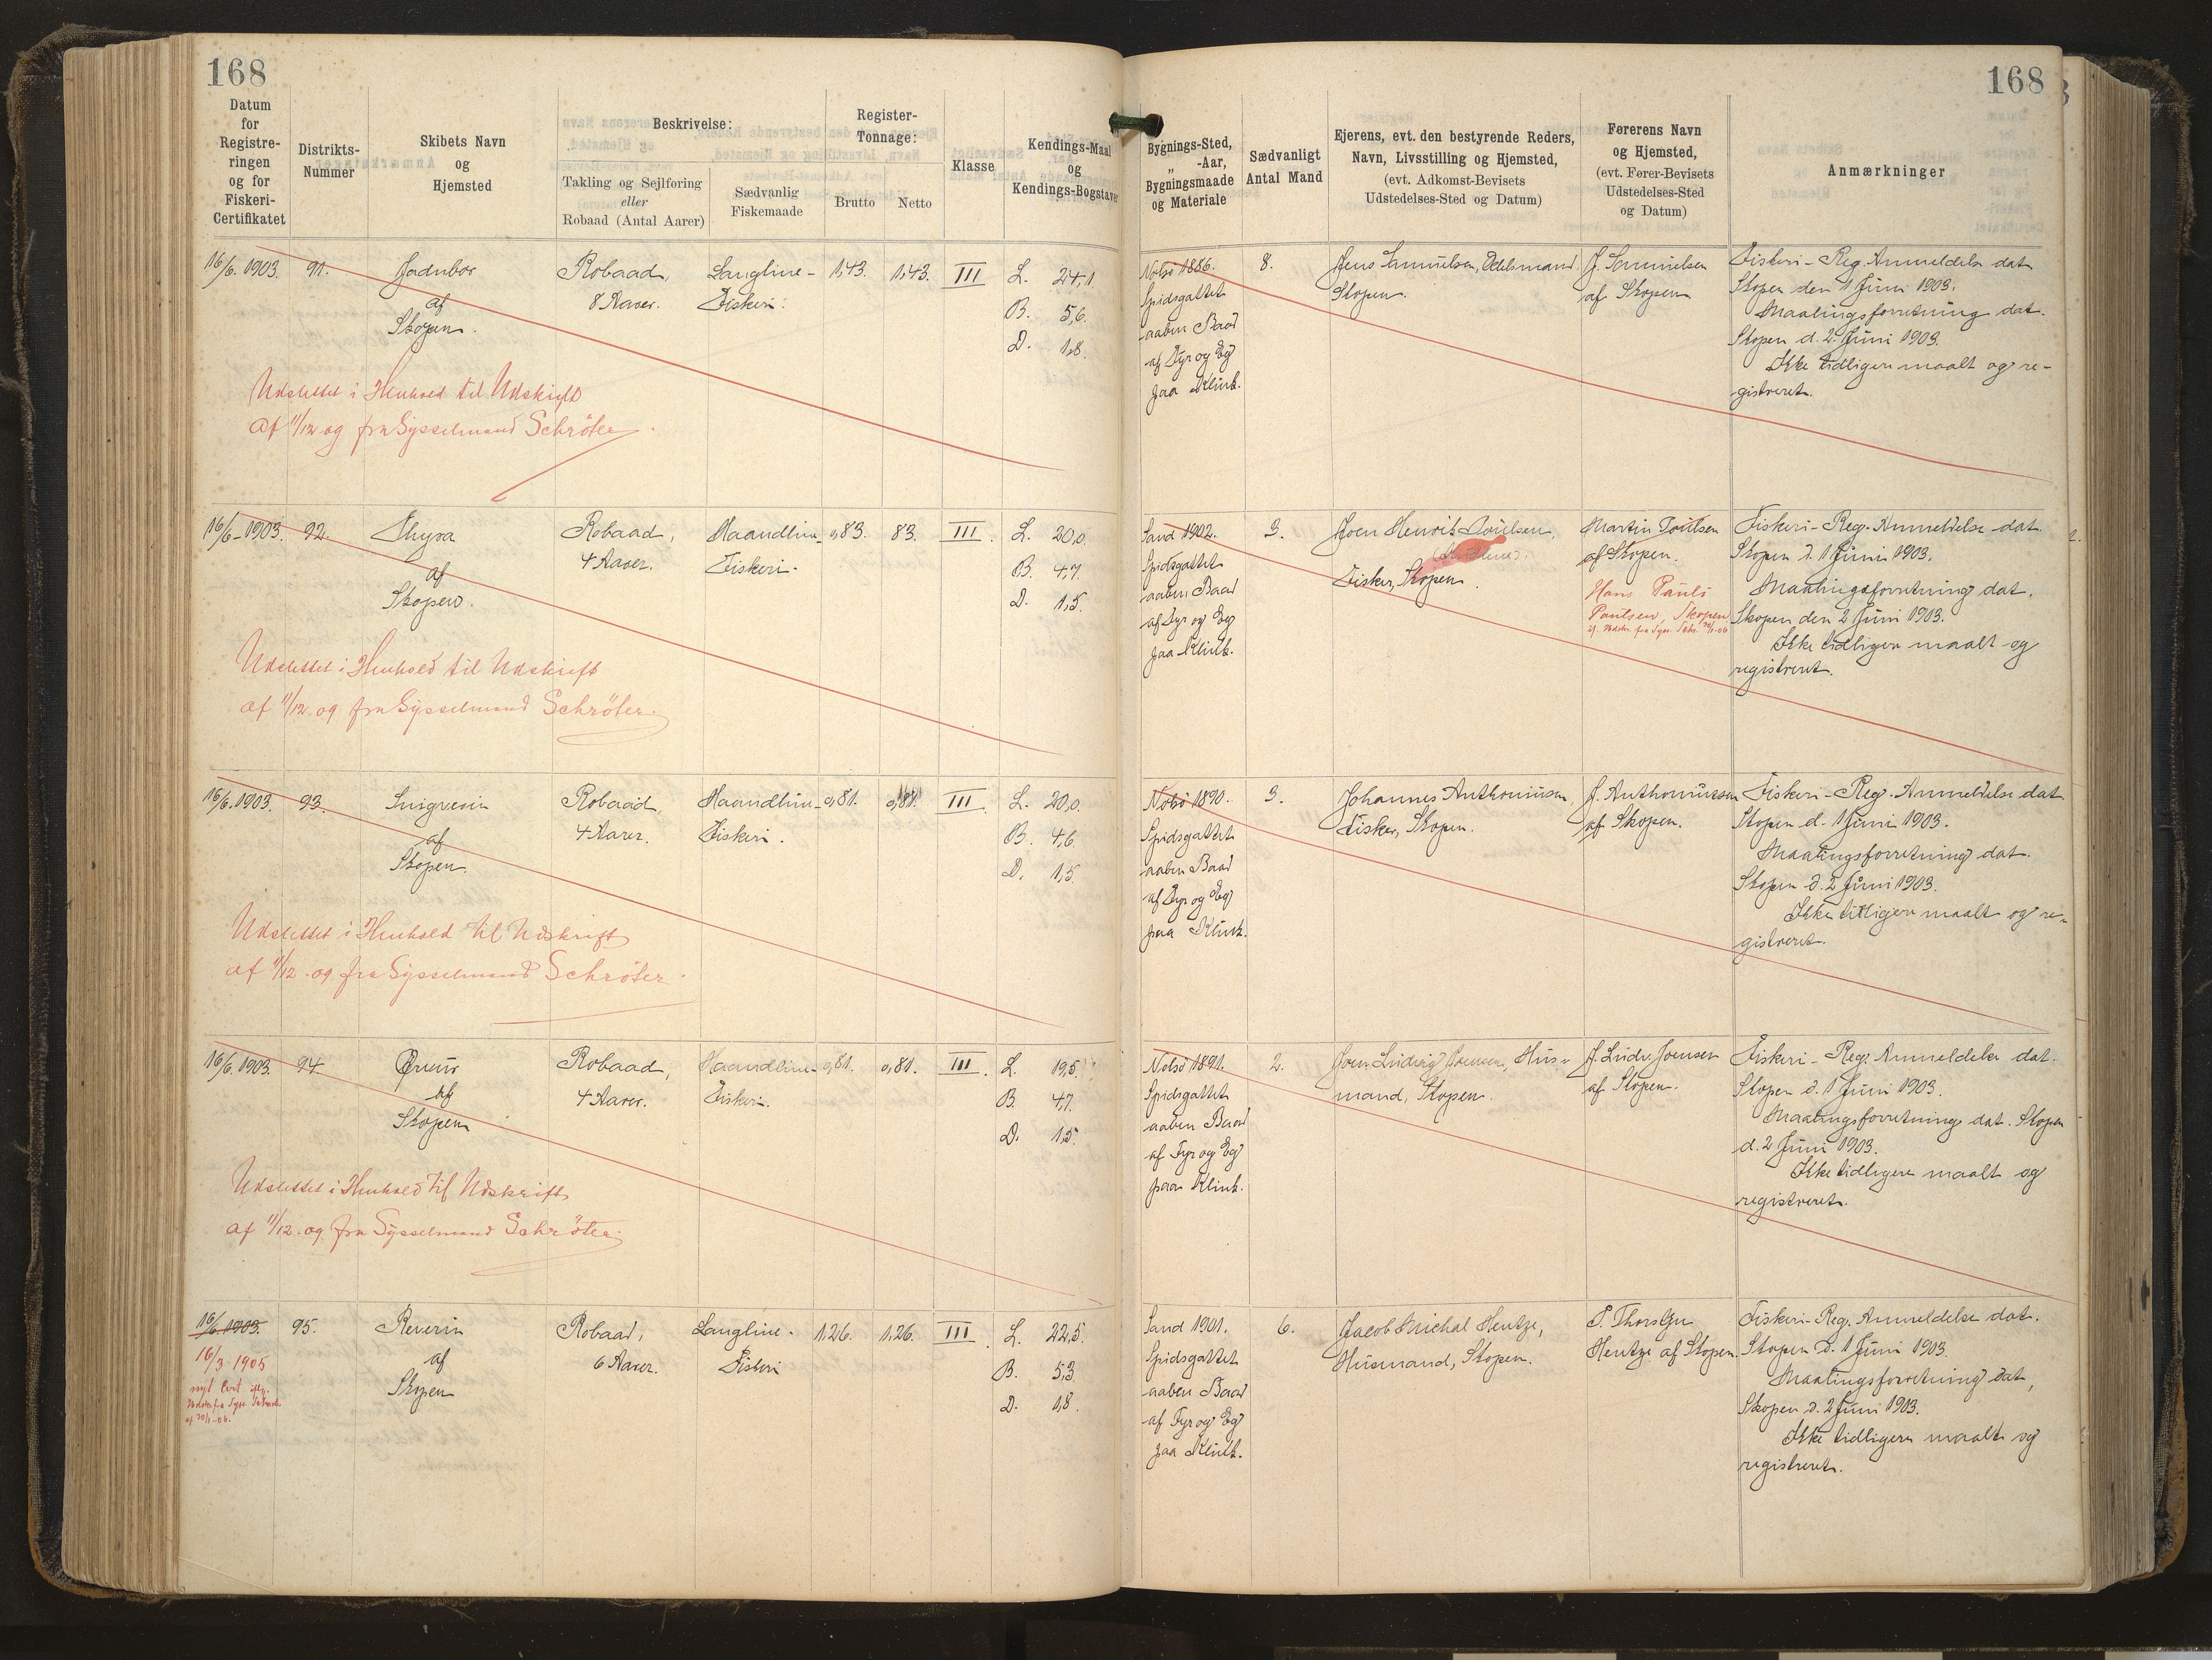 168
168
Datum
for
Registre-
ringen
og for
Fiskeri-
Certifikatet
Distrikts-
Nummer
Skibets Navn
og
Hjemsted
Beskrivelse:
Takling og Sejlføring
eller
Robaad (Antal Aarer)
Sædvanlig
Fiskemaade
Register-
Tonnage:
Brutto
Netto
Klasse
Kendings-Maal
og
Kendings-Bogstaver
Bygnings-Sted,
„ -Aar,
Bygningsmaade
og Materiale
Sædvanligt
Antal Mand
Ejerens, evt. den bestyrende Reders,
Navn, Livsstilling og Hjemsted,
(evt. Adkomst-Bevisets
Udstedelses-Sted og Datum)
Førerens Navn
og Hjemsted,
(evt. Fører-Bevisets
Udstedelses-Sted
og Datum)
Anmærkninger
16/6. 1903.
91.
af
Skopen.
Robaad,
8 Aarer.
Langline-
Fiskeri.
1,43.
1,43.
III
L. 24,1.
B. 5,6.
D. 1,8.
Nolsö 1886.
Spidsgattet
aaben Baad
af Fyr og Eg
paa Klink.
8.
Jens Samuelsen, Odelsmand,
Skopen.
J. Samuelsen
af Skopen
Fiskeri-Reg. Anmeldelse dat
Skopen den 1 Juni 1903.
Maalingsforretning dat.
Skopen d. 2. Juni 1903.
Ikke tidligere maalt og re-
gistreret.
Udslettet i Henhold til Udskrift
af 11/12 og fra Sysselmand Schröter.
16/6 1903.
92.
Thyra
af
Skopen.
Robaad,
4 Aarer.
Haandline-
Fiskeri.
0,83.
83.
III.
L. 20,0.
B. 4,7.
D. 1,5.
Sand 1902.
Spidsgattet
aaben Baad
af Fyr og Eg
paa Klink.
3.
Joen Henrik Poulsen,
Fisker, Skopen.
Martin Poulsen
af Skopen.
Hans Pauli
Paulsen, Skopen
Fiskeri-Reg. Anmeldelse dat
Skopen d. 1 Juni 1903.
Maalingsforretning dat.
Skopen den 2 Juni 1903.
Ikke tidligere maalt og
registreret.
Udslettet i Henhold til Udskrift
af 11/12. og fra Sysselmand Schröter.
16/6. 1903.
93.
af
Skopen.
Robaad,
4 Aarer.
Haandline-
Fiskeri.
0,81.
0,81.
III.
L. 20,0.
B. 4,6.
D. 1,5.
Nolsö 1890.
Spidsgattet
aaben Baad
af Fyr og Eg
paa Klink.
3.
Johannes Anthoniusen
Fisker, Skopen.
J. Anthoniussen
af Skopen.
Fiskeri-Reg. Anmeldelse dat.
Skopen d. 1 Juni 1903.
Maalingsforretning dat.
Skopen d. 2 Juni 1903.
Ikke tidligere maalt og re-
gistreret.
Udslettet i Henhold til Udskrift
af 11/12. og fra Sysselmand Schröter.
16/6. 1903.
94.
af
Skopen
Robaad,
4 Aarer.
Haandline-
Fiskeri.
0,81.
0,81.
III.
L. 19,5.
B. 4,7.
D. 1,5.
Nolsö 1891.
Spidsgattet
aaben Baad
af Fyr og Eg
paa Klink.
2.
Joen Ludvig Joensen, Hus-
mand, Skopen.
J. Ludv. Joensen
af Skopen.
Fiskeri-Reg. Anmeldelse dat.
Skopen d. 1 Juni 1903.
Maalingsforretning dat. Skopen
d. 2 Juni 1903.
Ikke tidligere maalt og
registreret.
Udslettet i Henhold til Udskrift
af 11/12. og fra Sysselmand Schröter.
16/6 1903.
16/3 1905
nyt Cert.
95.
Reverin
af
Skopen
Robaad,
6 Aarer.
Langline-
Fiskeri
1,26.
1,26.
III.
L. 22,5.
B. 5,3.
D. 1,8.
Sand 1901.
Spidsgattet
aaben Baad
af Fyr og Eg
paa Klink.
6.
Jacob Michal Hentze,
Husmand, Skopen.
Hentze af Skopen.
Fiskeri-Reg. Anmeldelse dat.
Skopen d. 1 Juni 1903.
Maalingsforretning dat,
Skopen d. 2 Juni 1903.
Ikke tidligere maalt og
registreret.